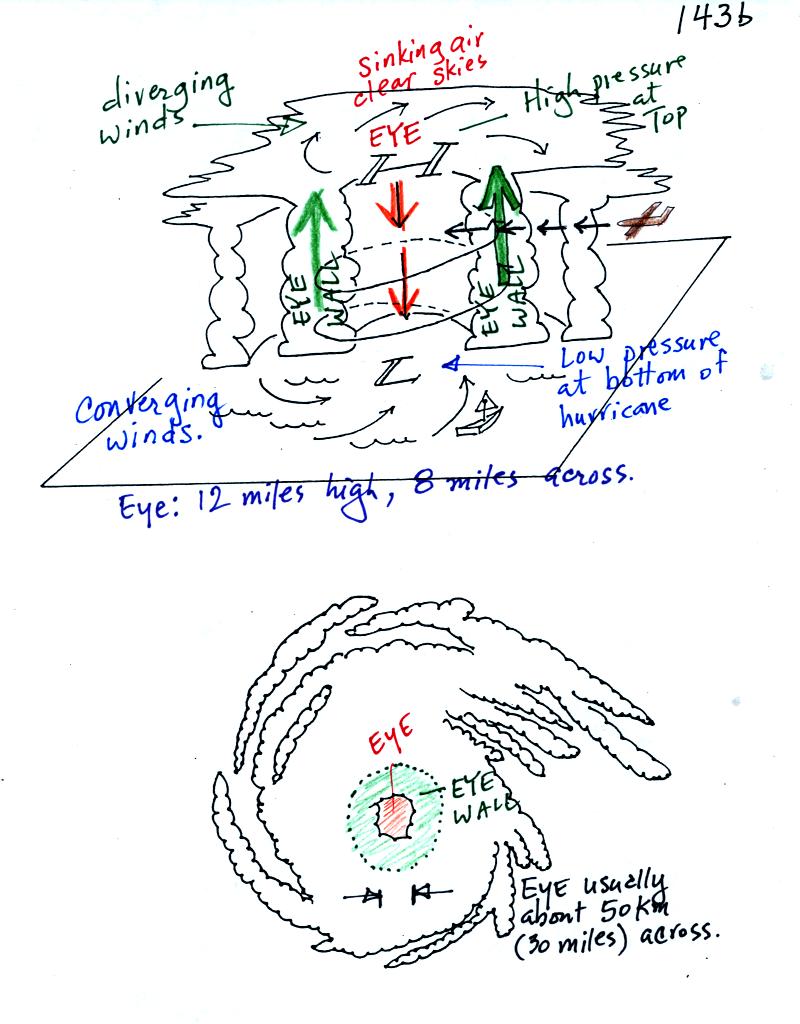 143b
Sinking air
clear skies
diverging
winds
High pressure
at
Top
EYE
EYE
WALL
EYE
WALL
Converging
winds.
Low pressure
at bottom of
hurricane
Eye: 12 miles high, 8 miles across.
EYE
EYE
WALL
EYE usually
about 50 Km
(30 miles) across.